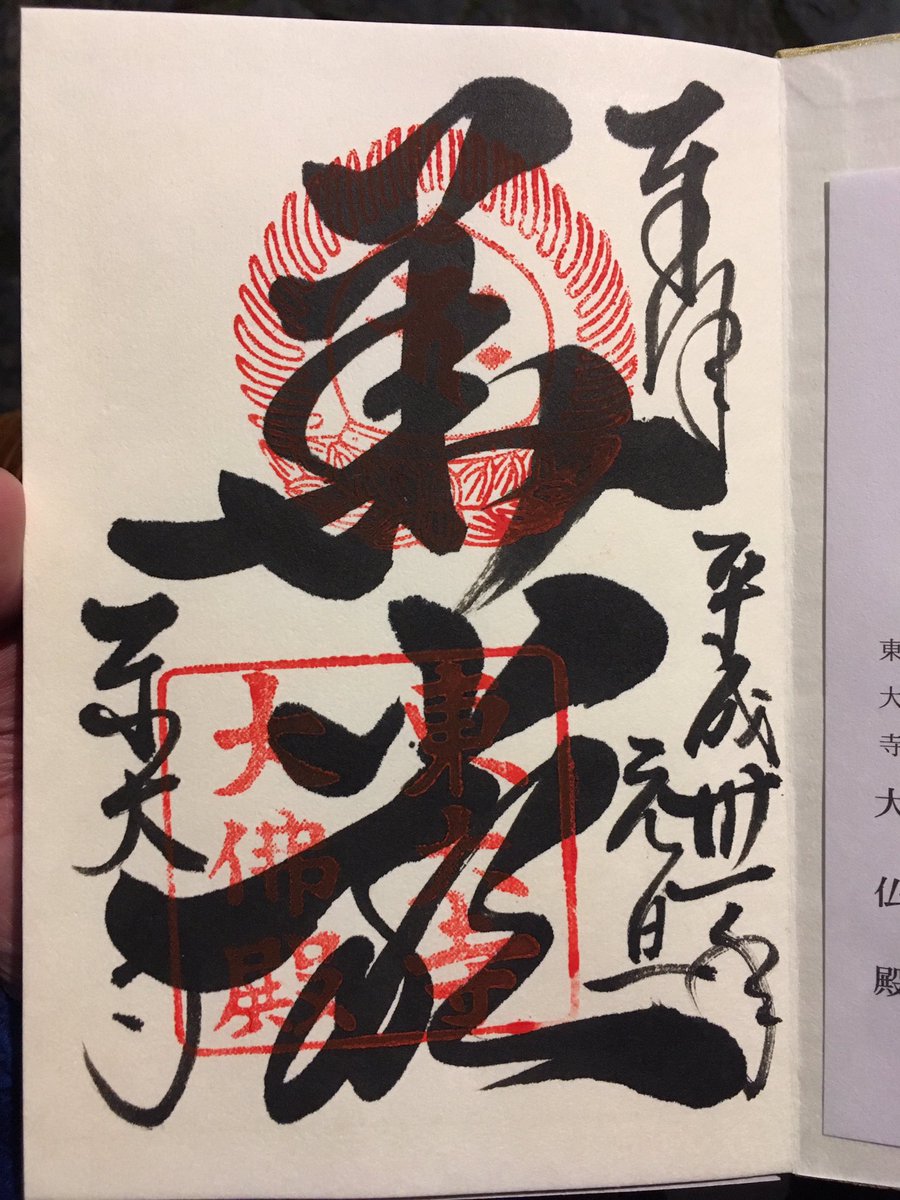 東大寺大仏殿
奉拝
平成卅一年
元旦
華厳
東大寺
大佛殿
東大寺